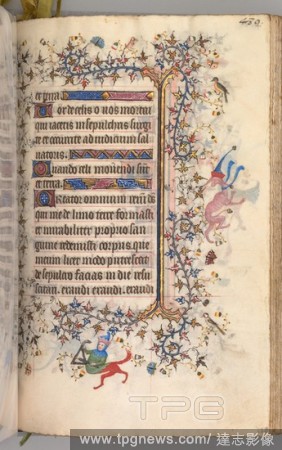 450
et terra
Vor de celis o uos mortui
qui iacetis in sepulchris surgi
te et occurrite ad iudicium sal
uatoris.
Quando celi mouendi sunt
et terra.
Creator omnium rerum deus
qui me de limo terre formasti
et mirabiliter proprio san
guine redemisti corpus que
meum licet modo putrescat
de sepulcro facias in die resu
scitari. exaudi exaudi. exaudi
TPG
www.tpgnews.com/ 達志影像